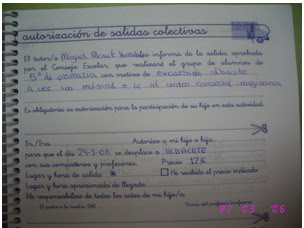 autorización de salidas colectivas
El tutor/a Miguel informa de la salida, aprobada
por el Consejo Escolar, que realizará el grupo de alumnos de
5º de primaria con motivo de excursión albacete
a ver un musical e ir al centro comercial
Es obligatoria su autorización para la participación de su hijo en esta actividad.
Sr./Sra. Autorizo a mi hijo o hija
para que el día 29-3-06 se desplace a ALBACETE
con sus compañeros y profesores. Precio 12 €
Lugar y hora de salida He recibido el precio indicado
Lugar y hora aproximada de llegada
Me responsabilizo de todos los actos de mi hijo/a.
27 03 '06